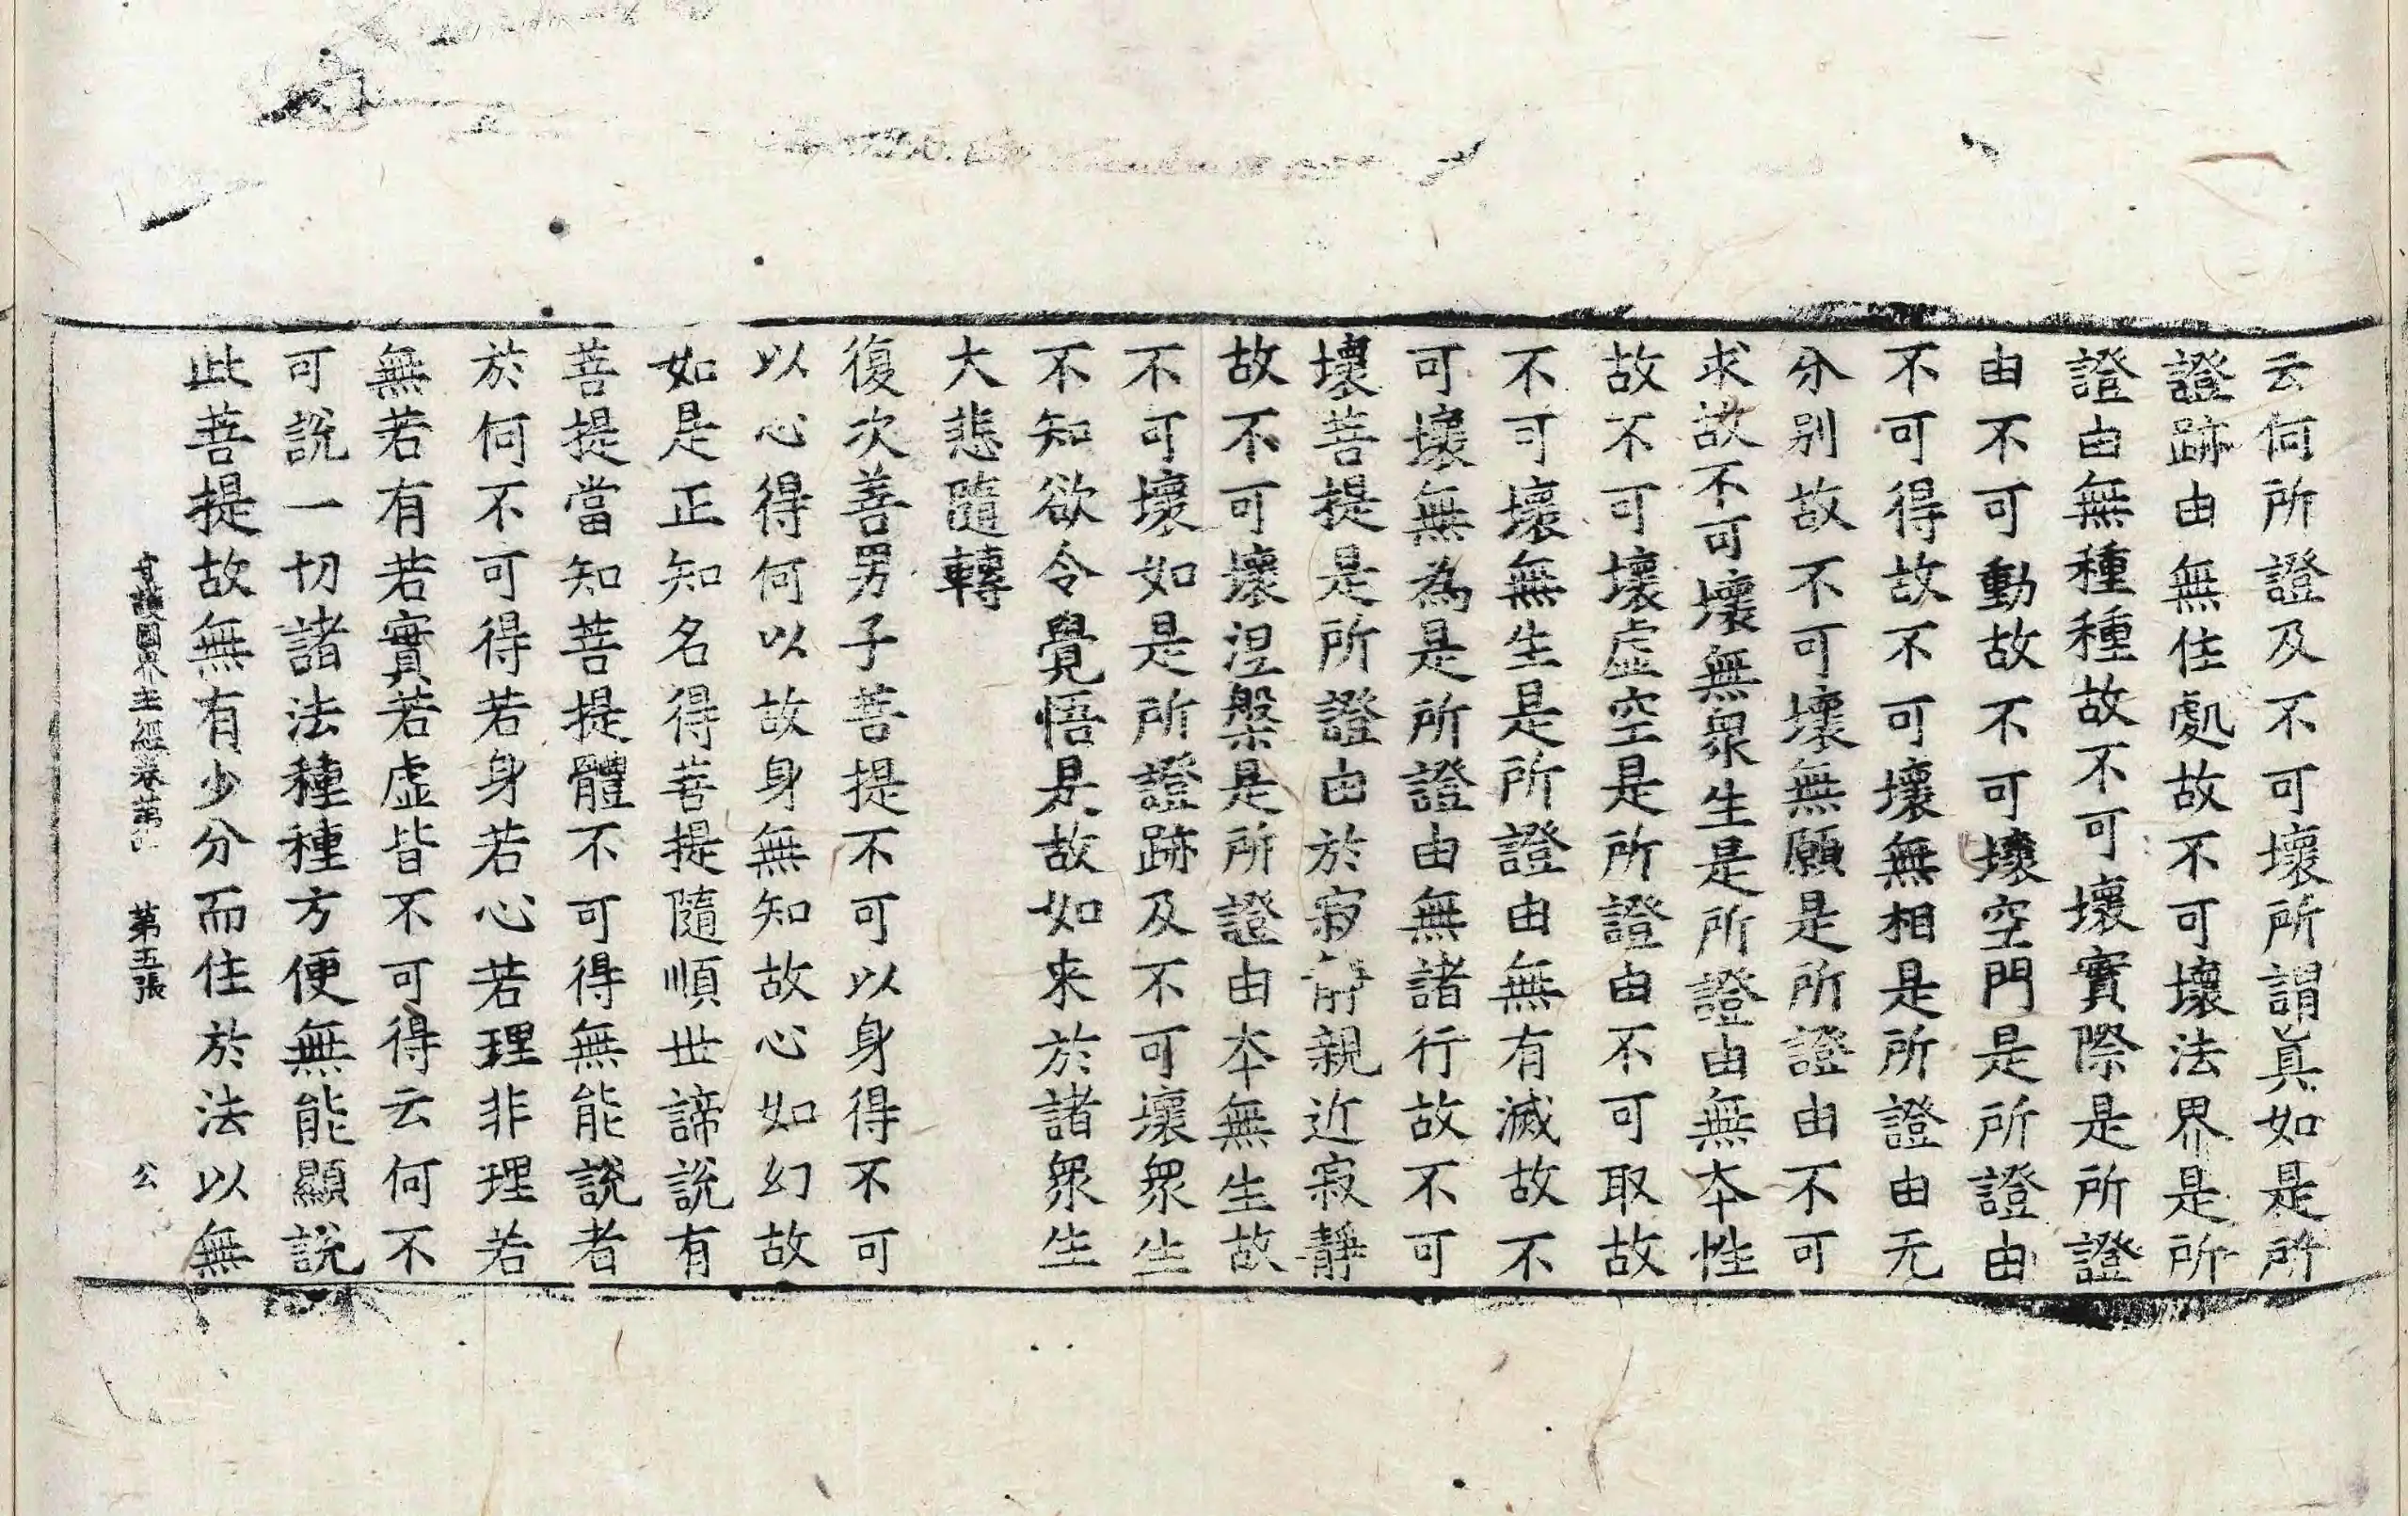 云何所證及不可壞所謂眞如是所
證跡由無住處故不可壞法界是所
證由無種種故不可壞實際是所證
由不可動故不可壞空門是所證由
不可得故不可壞無相是所證由无
分別故不可壞無願是所證由不可
求故不可壞無衆生是所證由無本性
故不可壞虛空是所證由不可取故
不可壞無生是所證由無有滅故不
可壞無為是所證由無諸行故不可
壞菩提是所證由於寂靜親近寂靜
故不可壞涅槃是所證由本無生故
不可壞如是所證跡及不可壞衆生
不知欲令覺悟是故如来於諸衆生
大悲隨轉
復次善男子菩提不可以身得不可
以心得何以故身無知故心如幻故
如是正知名得菩提隨順世諦說有
菩提當知菩提體不可得無能說者
於何不可得若身若心若理非理若
無若有若實若虛皆不可得云何不
可說一切諸法種種方便無能顯說
此菩提故無有少分而住於法以無
守護國界主經卷第 第五張 公